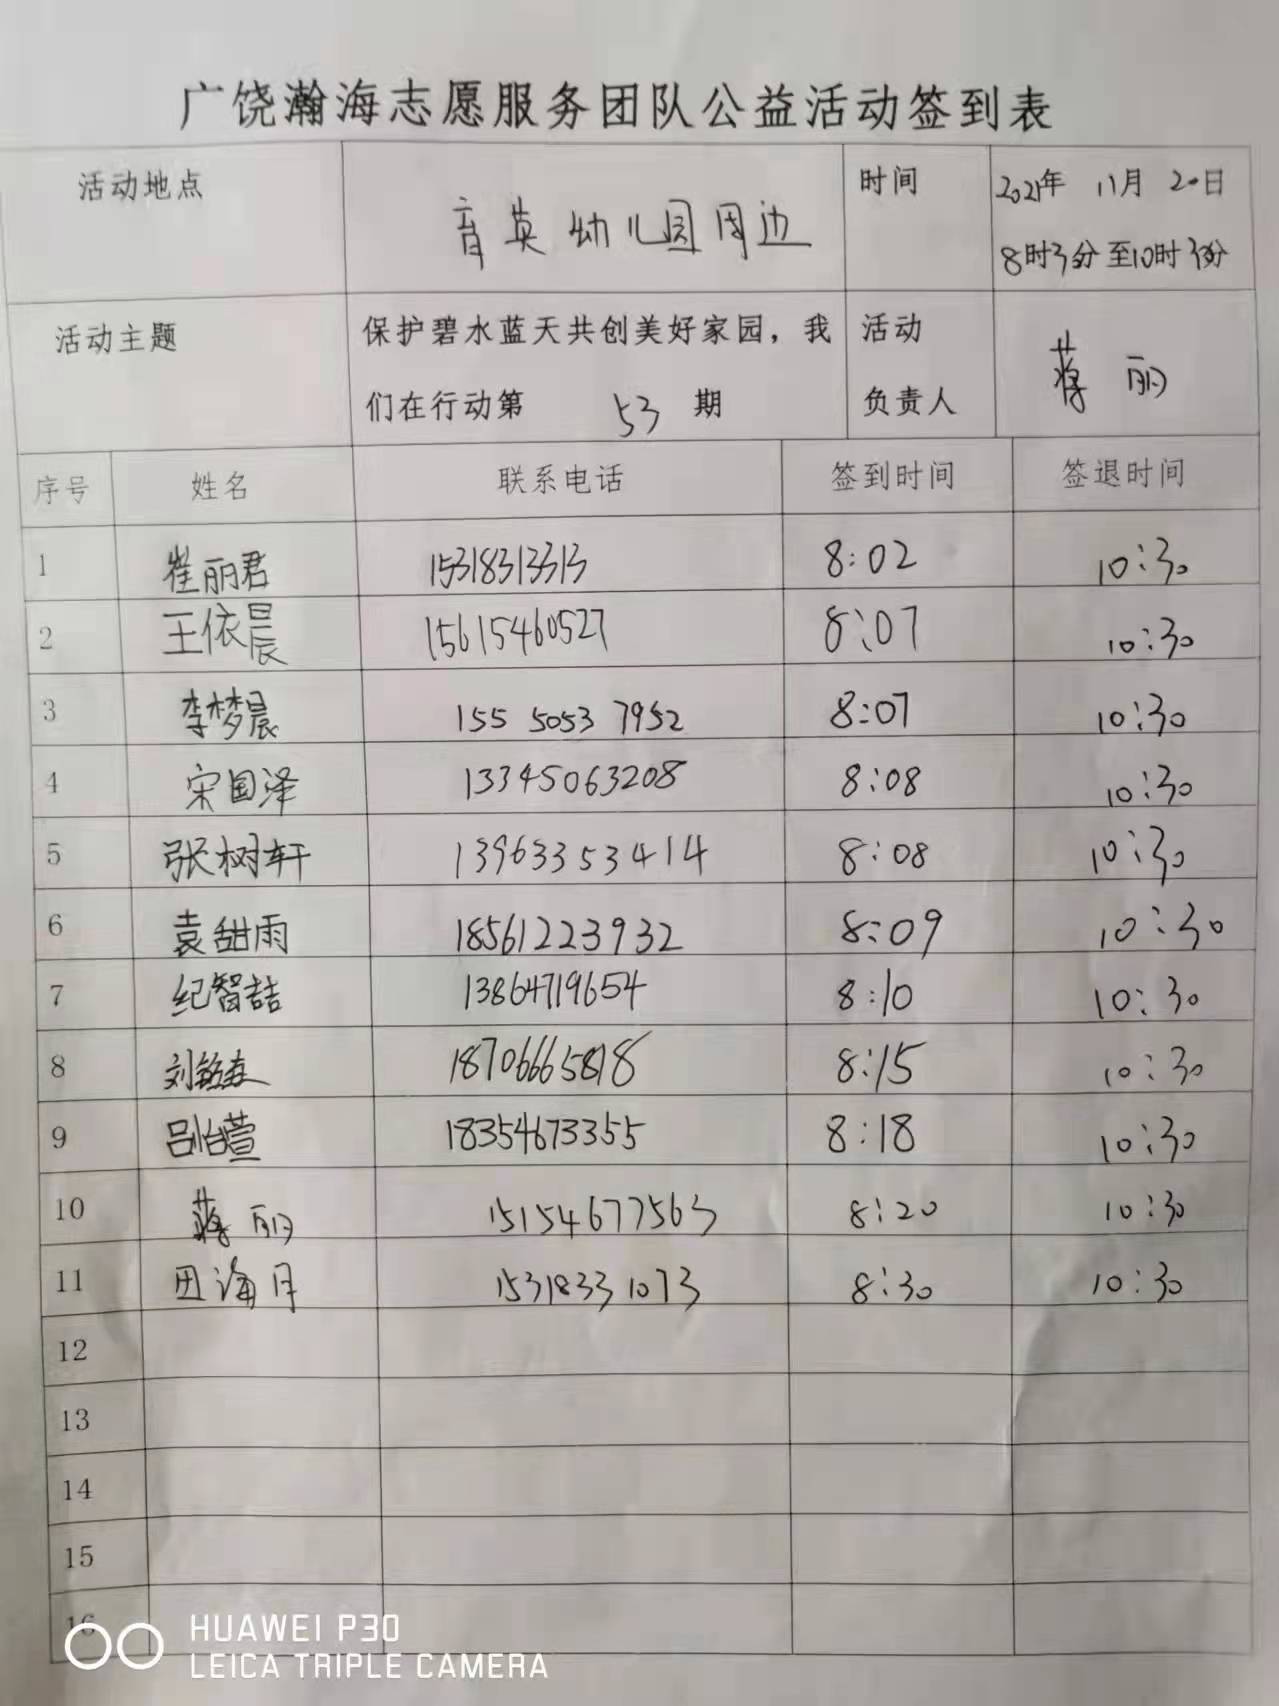 广饶瀚海志愿服务团队公益活动签到表
活动地点 育英幼儿园周边 时间 2021年 11月 20日
8时30分至10时30分
活动主题 保护碧水蓝天共创美好家园，我 活动 蒋丽
们在行动第 53 期 负责人
序号 姓名 联系电话 签到时间 签退时间
1 崔丽君 15318313313 8:02 10:30
2 王依晨 15615460527 8:07 10:30
3 李梦晨 155 5053 7952 8:07 10:30
4 宋国泽 13345063208 8:08 10:30
5 张树轩 13963353414 8:08 10:30
6 袁甜雨 18561223932 8:09 10:30
7 纪智喆 13864719654 8:10 10:30
8 刘 18706665818 8:15 10:30
9 吕怡萱 18354673355 8:18 10:30
10 蒋丽 15154677563 8:20 10:30
11 田海月 15318331073 8:30 10:30
12
13
14
15
16
HUAWEI P30
LEICA TRIPLE CAMERA